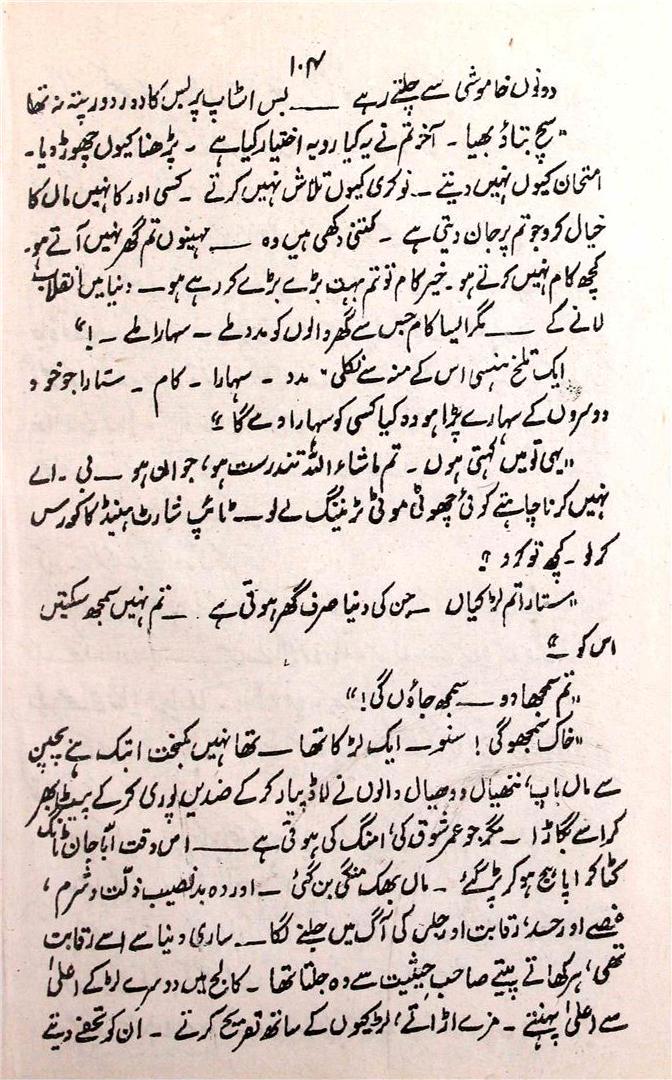 ۱۰۴
دونوں خاموشی سے چلتے رہے ــــ بس اسٹاپ پر بس کا دور دور پتہ نہ تھا
”سچ بتاؤ بھیا ۔ آخر تم نے یہ کیا رویہ اختیار کیا ہے ۔ پڑھنا کیوں چھوڑ دیا ۔
امتحان کیوں نہیں دیتے ۔ نوکری کیوں تلاش نہیں کرتے ۔ کسی اور کا نہیں ماں کا
خیال کرو جو تم پر جان دیتی ہے ۔ کتنی دکھی ہیں وہ ــــ مہینوں تم گھر نہیں آتے ہو۔
کچھ کام نہیں کرتے ہو ۔ خیر کام تو تم بہت بڑے بڑے کر رہے ہو ــ دنیا میں انقلاب
لانے کے ــــ مگر ایسا کام جس سے گھر والوں کو مدد ملے ۔ سہارا ملے ۔ !“
ایک تلخ ہنسی اس کے منہ سے نکلی ”مدد ۔ سہارا ۔ کام ۔ ستارا جو خود
دوسروں کے سہارے پڑا ہو وہ کیا کسی کو سہارا دے گا ؟“
”یہی تو میں کہتی ہوں ۔ تم ماشاء اللہ تندرست ہو، جوان ہو ــ بی ۔ اے
نہیں کرنا چاہتے کوئی چھوٹی موٹی ٹریننگ لے لو ــ ٹائپ شارٹ ہینڈ کا کورس
کر لو ۔ کچھ تو کرو ؟
”ستارا تم لڑکیاں ــ جن کی دنیا صرف گھر ہوتی ہے ــ تم نہیں سمجھ سکتیں
اس کو ــ“
”تم سمجھا دو ــ سمجھ جاؤں گی !“
”خاک سمجھو گی ! سنو ــ ایک لڑکا تھا ــ تھا نہیں کمبخت اب تک ہے بچپن
سے ماں باپ، ننھیال ددھیال والوں نے لاڈ پیار کر کے ضدیں پوری کر کے پیسہ بھر
کر اسے بگاڑا ۔ مگر جو عمر شوق کی، امنگ کی ہوتی ہے ــــ اس وقت ابا جان ٹانگ
کٹا کر اپاہج ہو کر پڑ گئے ۔ ماں بھک منگی بن گئی ۔ اور وہ بدنصیب ذلت و شرم ،
غصے اور حسد، رقابت اور جلن کی آگ میں جلنے لگا ــ ساری دنیا سے اسے رقابت
تھی، ہر کھاتے پیتے صاحب حیثیت سے وہ جلتا تھا ۔ کالج میں دوسرے لڑکے اعلیٰ
سے اعلیٰ پہنتے ۔ مزے اڑاتے، لڑکیوں کے ساتھ تفریح کرتے ۔ ان کو تحفے دیتے